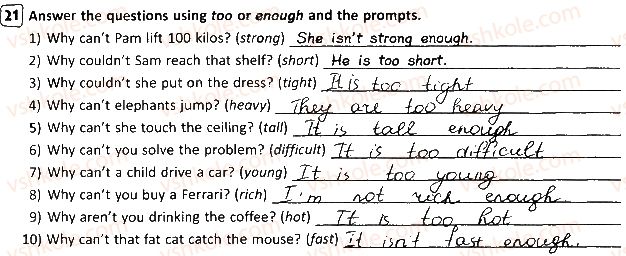 21 Answer the questions using too or enough and the prompts.
1) Why can't Pam lift 100 kilos? (strong) She isn't strong enough.
2) Why couldn't Sam reach that shelf? (short) He is too short.
3) Why couldn't she put on the dress? (tight) It is too tight
4) Why can't elephants jump? (heavy) They are too heavy
5) Why can't she touch the ceiling? (tall) It is tall enough
6) Why can't you solve the problem? (difficult) It is too difficult
7) Why can't a child drive a car? (young) It is too young
8) Why can't you buy a Ferrari? (rich) I'm not rich enough
9) Why aren't you drinking the coffee? (hot) It is too hot
10) Why can't that fat cat catch the mouse? (fast) It isn't fast enough.